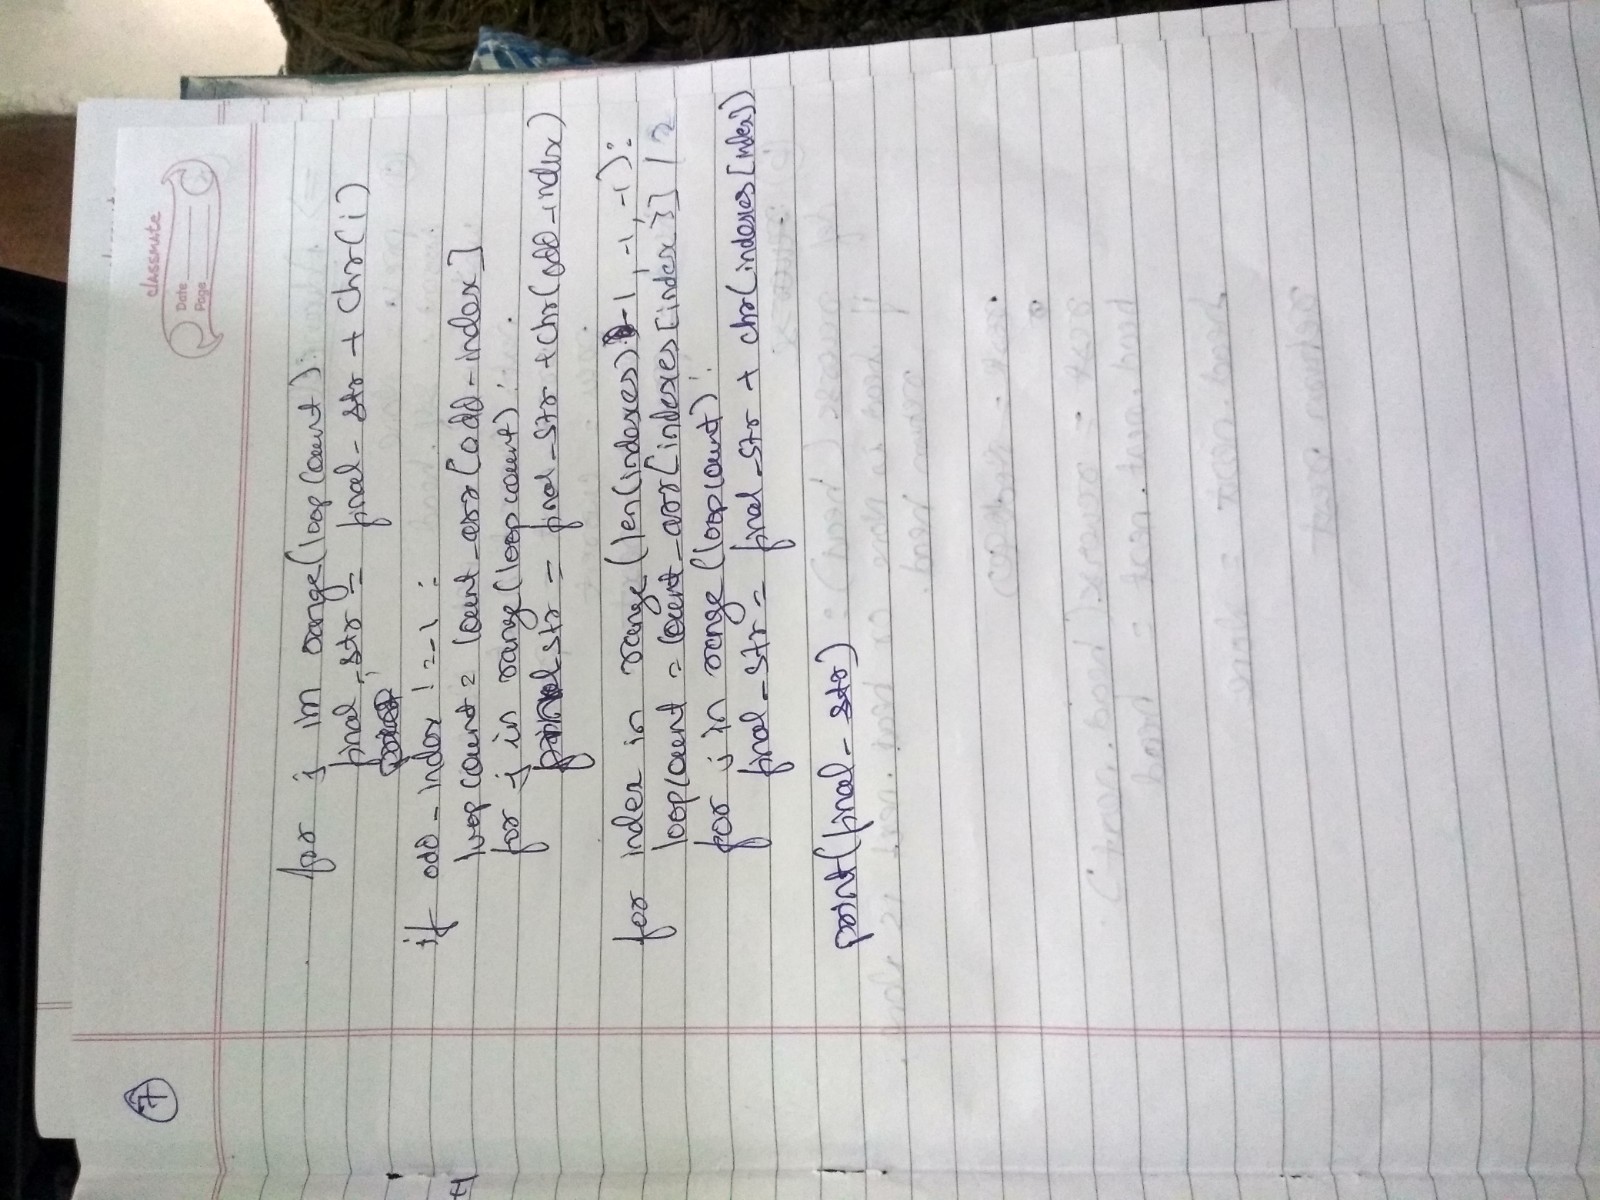 7
classmate
Date
Page
for j in range(loopcount):
final_str = final_str + chr(i)
if odd_index != -1 :
loopcount = count_arr[odd_index]
for j in range(loopcount):
final_str = final_str + chr(odd_index)
for index in range(len(indexes)-1, -1, -1):
loopcount = count_arr[indexes[index]] / 2
for j in range(loopcount):
final_str = final_str + chr(indexes[index])
print(final_str)